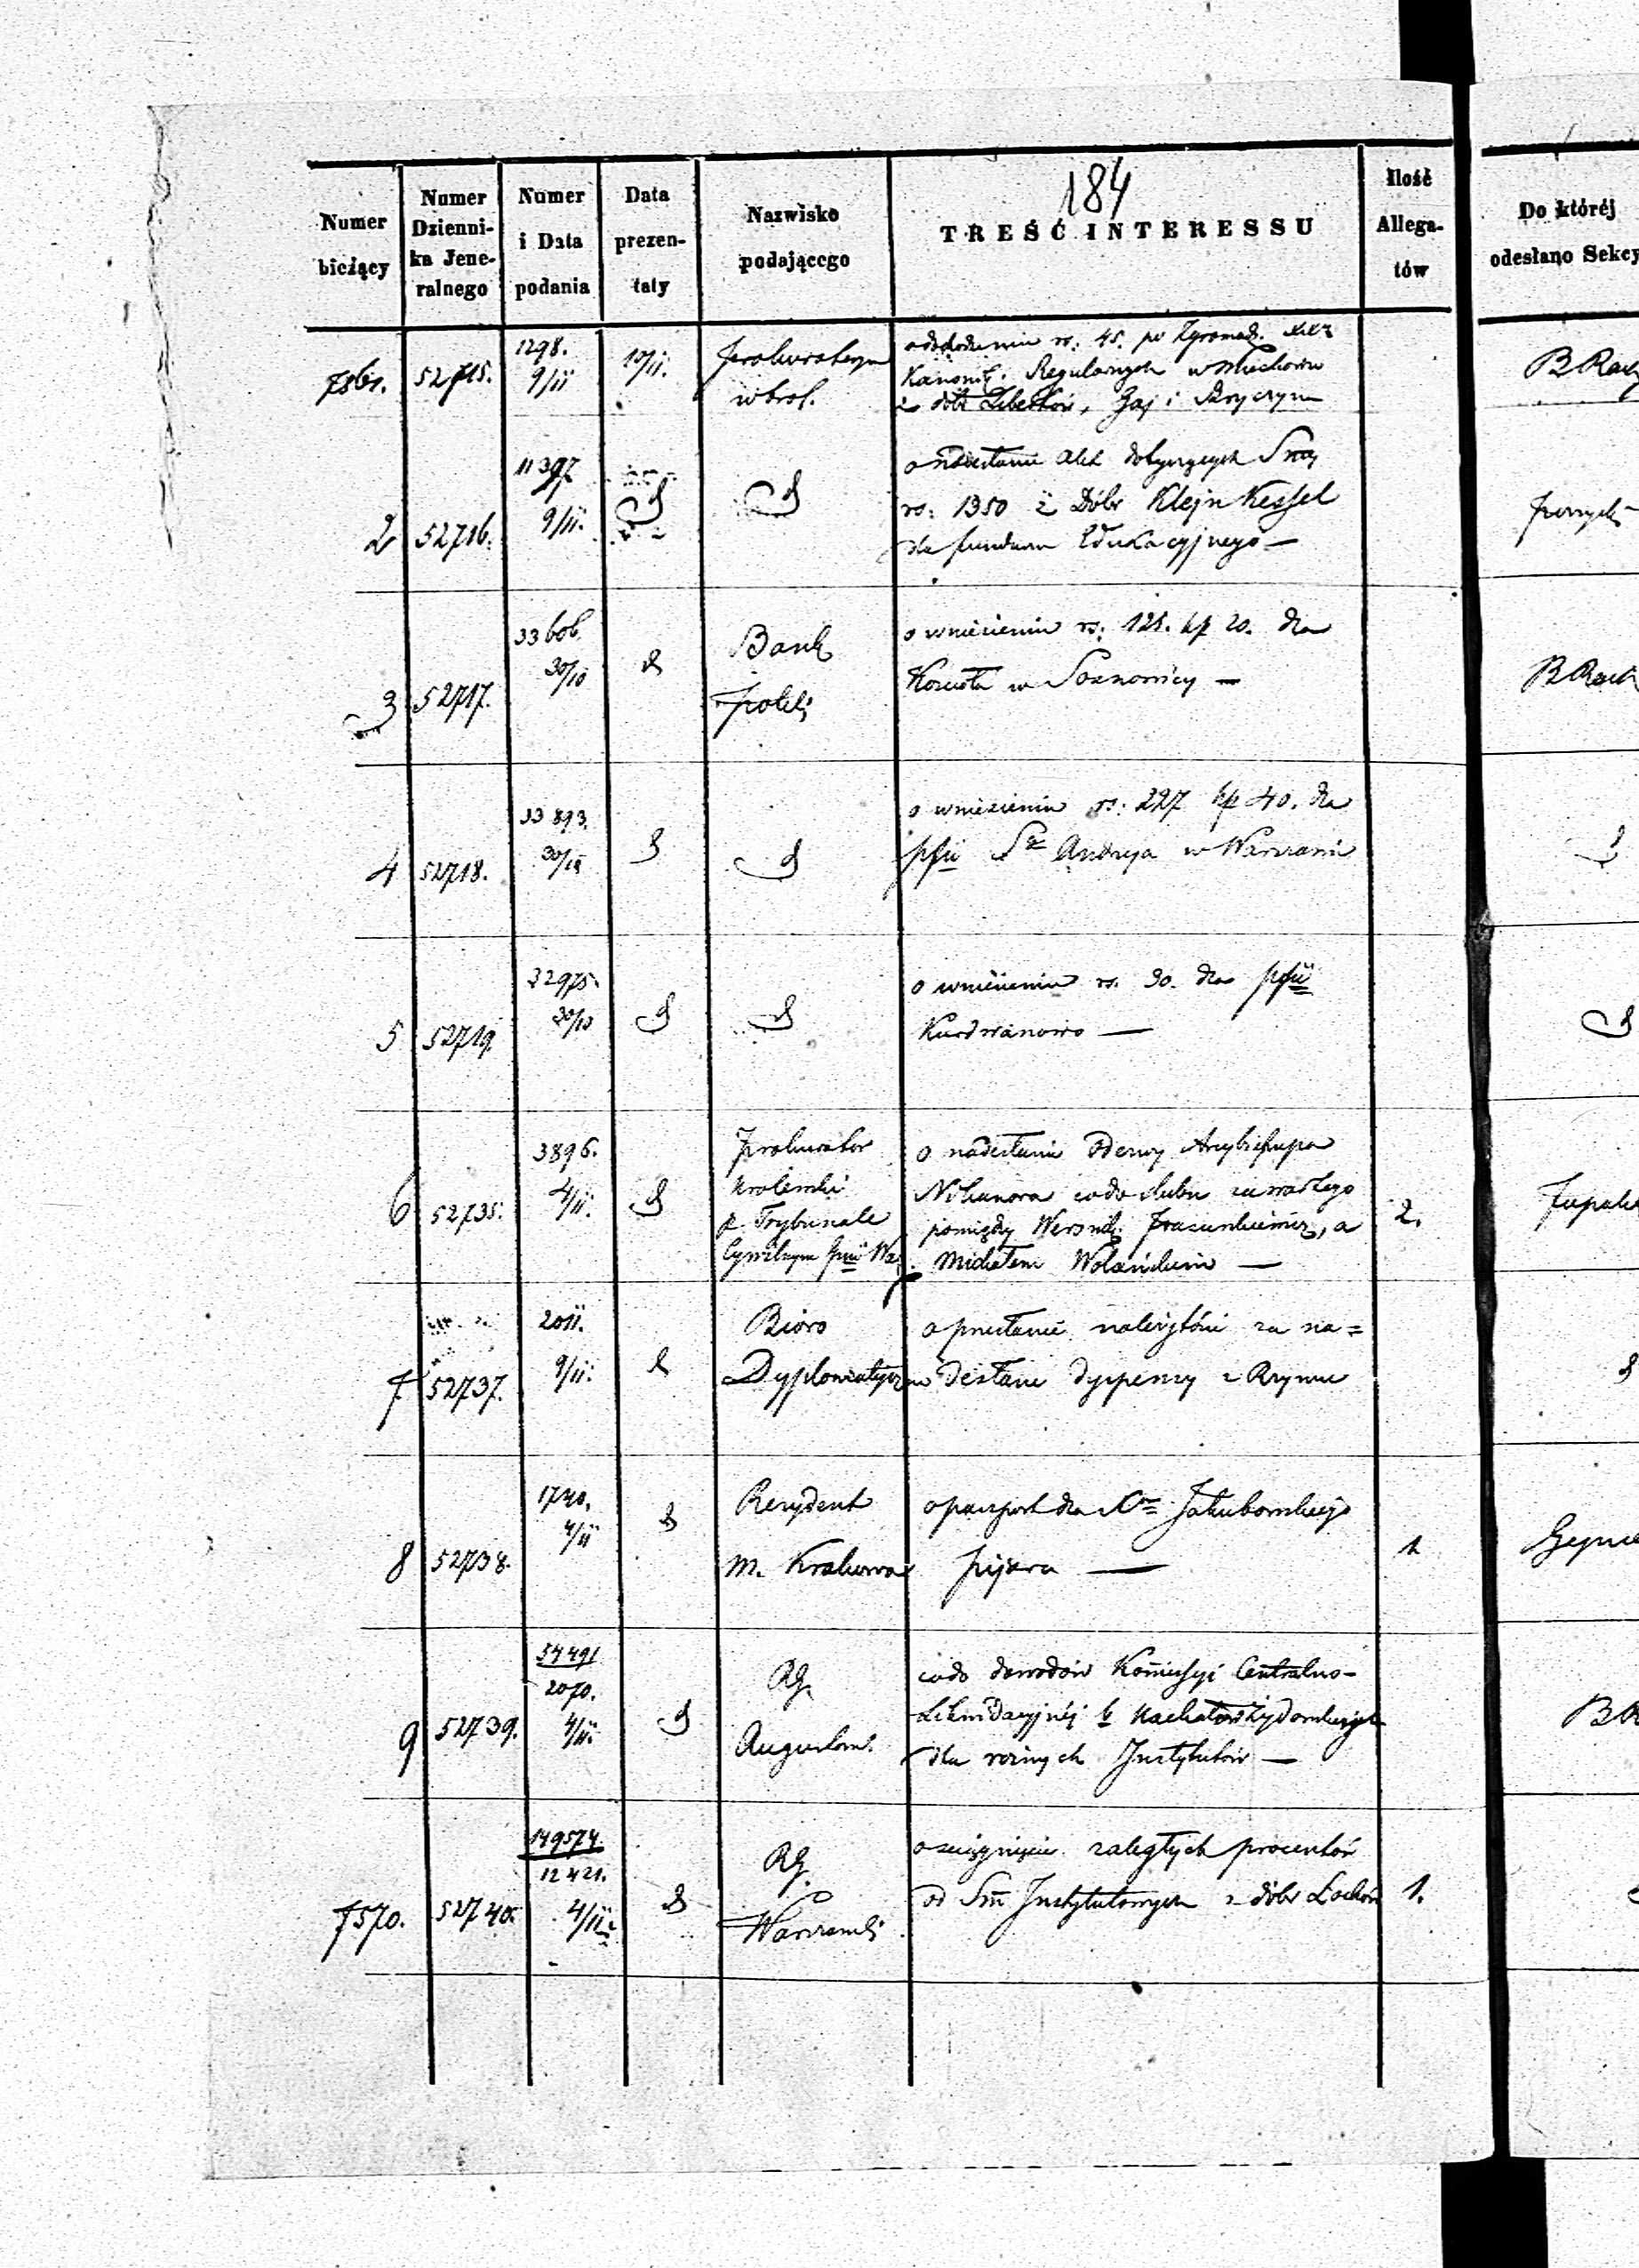 184
Numer
bieżący
Numer
Dzienni-
ka Jene-
ralnego
Numer
i Data
podania
Data
prezen-
taty
Nazwisko
podającego
TREŚĆ INTERESSU
Ilość
Allega-
tów
Do któréj
odesłano Sekcy
7561. 52715. 1298. 9/11 10/11.
w Król.
rs: 45. po Zgromadz.
Kanonik. Regularnych w
z dóbr Libertów, Gaj i
2 52716. 11397 9/11.
o nadesłanie akt dotyczących Smy
rs: 1350 z Dóbr Klejn Kessel
dla funduszu Edukacyjnego —
3 52717. 33606. 30/10
Bank
Polski
o wniesieniu rs: 121. kp 20. dla
Kościoła w Sosnowicy —
B Rach
4 52718. 33893. 30/10
o wniesieniu rs: 227 kp 40. dla
pfii Sgo Andrzeja w Warszawie
5 52719. 32975. 30/10
o wniesieniu rs. 30. dla pfii
Kurdwanowo —
6 52735. 3896. 4/11.
Prokurator
Królewski
p. Trybunale
Cywilnym Gnii War.
o nadesłanie Odezwy Arcybiskupa
Nikanora co do ślubu zawartego
pomiędzy a
Michałem Wolańskim —
2.
7 52737. 2011. 9/11.
Bióro
Dyplomatyczne
o przesłanie należytości za na=
desłanie dyspensy z Rzymu
8 52738. 1740. 4/11
Rezydent
m. Krakowa
o paszport dla Xa Jakubowskiego
Pijara —
1
9 52739. 54491 2070. 4/11.
RG.
Augustows.
co do dowodów Kommissyi Centralno-
Likwidacyjnéj
dla różnych Instytutów —
7570. 52740. 149574. 12421. 4/11.
RG.
Warszawski
o ściągnięcie zaległych procentów
od Sm Instytutowych z dóbr Łochów
1.